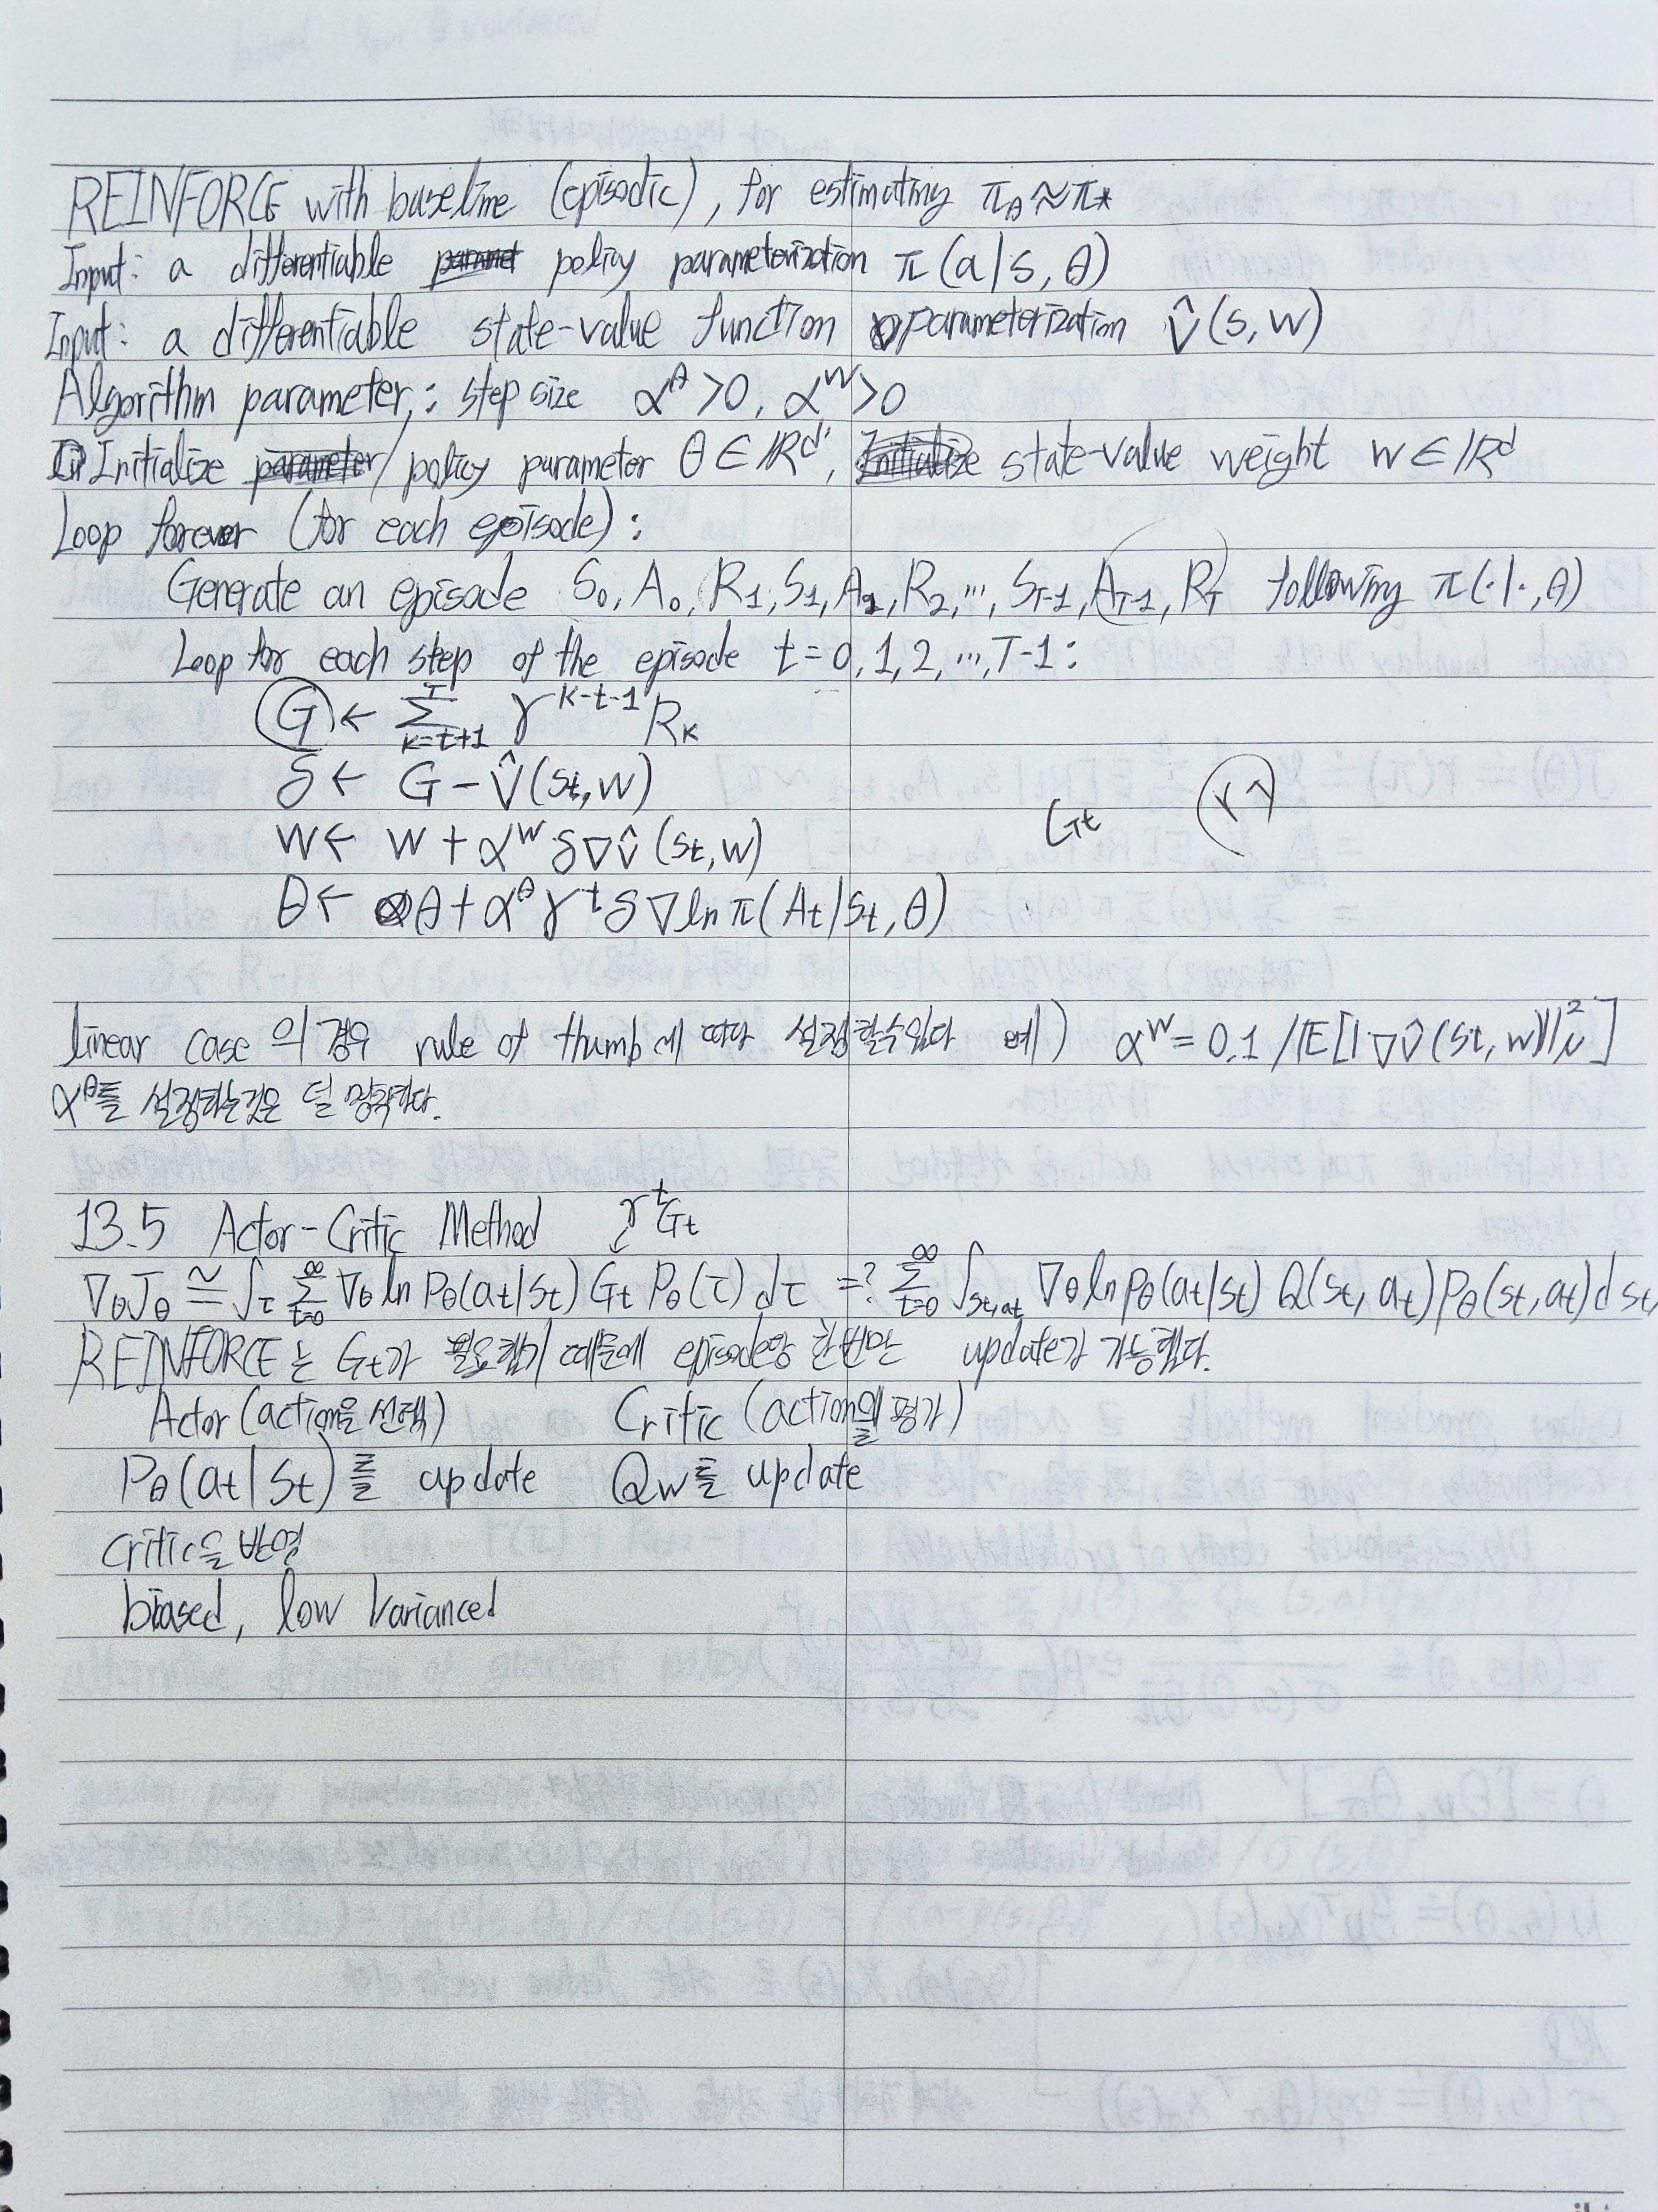 REINFORCE with baseline (episodic), for estimating π_θ ≈ π*
Input: a differentiable policy parameterization π(a|s, θ)
Input: a differentiable state-value function parameterization v̂(s, w)
Algorithm parameter: step size α^θ > 0, α^w > 0
Initialize policy parameter θ ∈ ℝ^d', state-value weight w ∈ ℝ^d
Loop forever (for each episode):
Generate an episode S₀, A₀, R₁, S₁, A₁, R₂, …, S_T-1, A_T-1, R_T following π(·|·, θ)
Loop for each step of the episode t = 0, 1, 2, …, T-1:
G ← Σ_{k=t+1}^{T} γ^{k-t-1} R_k
δ ← G - v̂(St, w)
w ← w + α^w δ∇v̂(St, w)
Gt
θ ← θ + α^θ γ^t δ∇ln π(At|St, θ)
linear case의 경우 rule of thumb에 따라 설정할수있다 예) α^w = 0.1 / E[‖∇v̂(St, w)‖²_μ]
α^θ를 설정하는것은 덜 명확하다.
13.5 Actor-Critic Method
γ^t Gt
∇_θ J_θ ≅ ∫_τ Σ_{t=0}^{∞} ∇_θ ln P_θ(at|st) Gt P_θ(τ) dτ =? Σ_{t=0}^{∞} ∫_{st,at} ∇_θ ln p_θ(at|st) Q(st, at) p_θ(st, at) d st,
REINFORCE는 Gt가 필요했기 때문에 episode당 한번만 update가 가능했다.
Actor (action을 선택) Critic (action을 평가)
P_θ(at|st)를 update Q_w를 update
critic을 반영
biased, low varianced